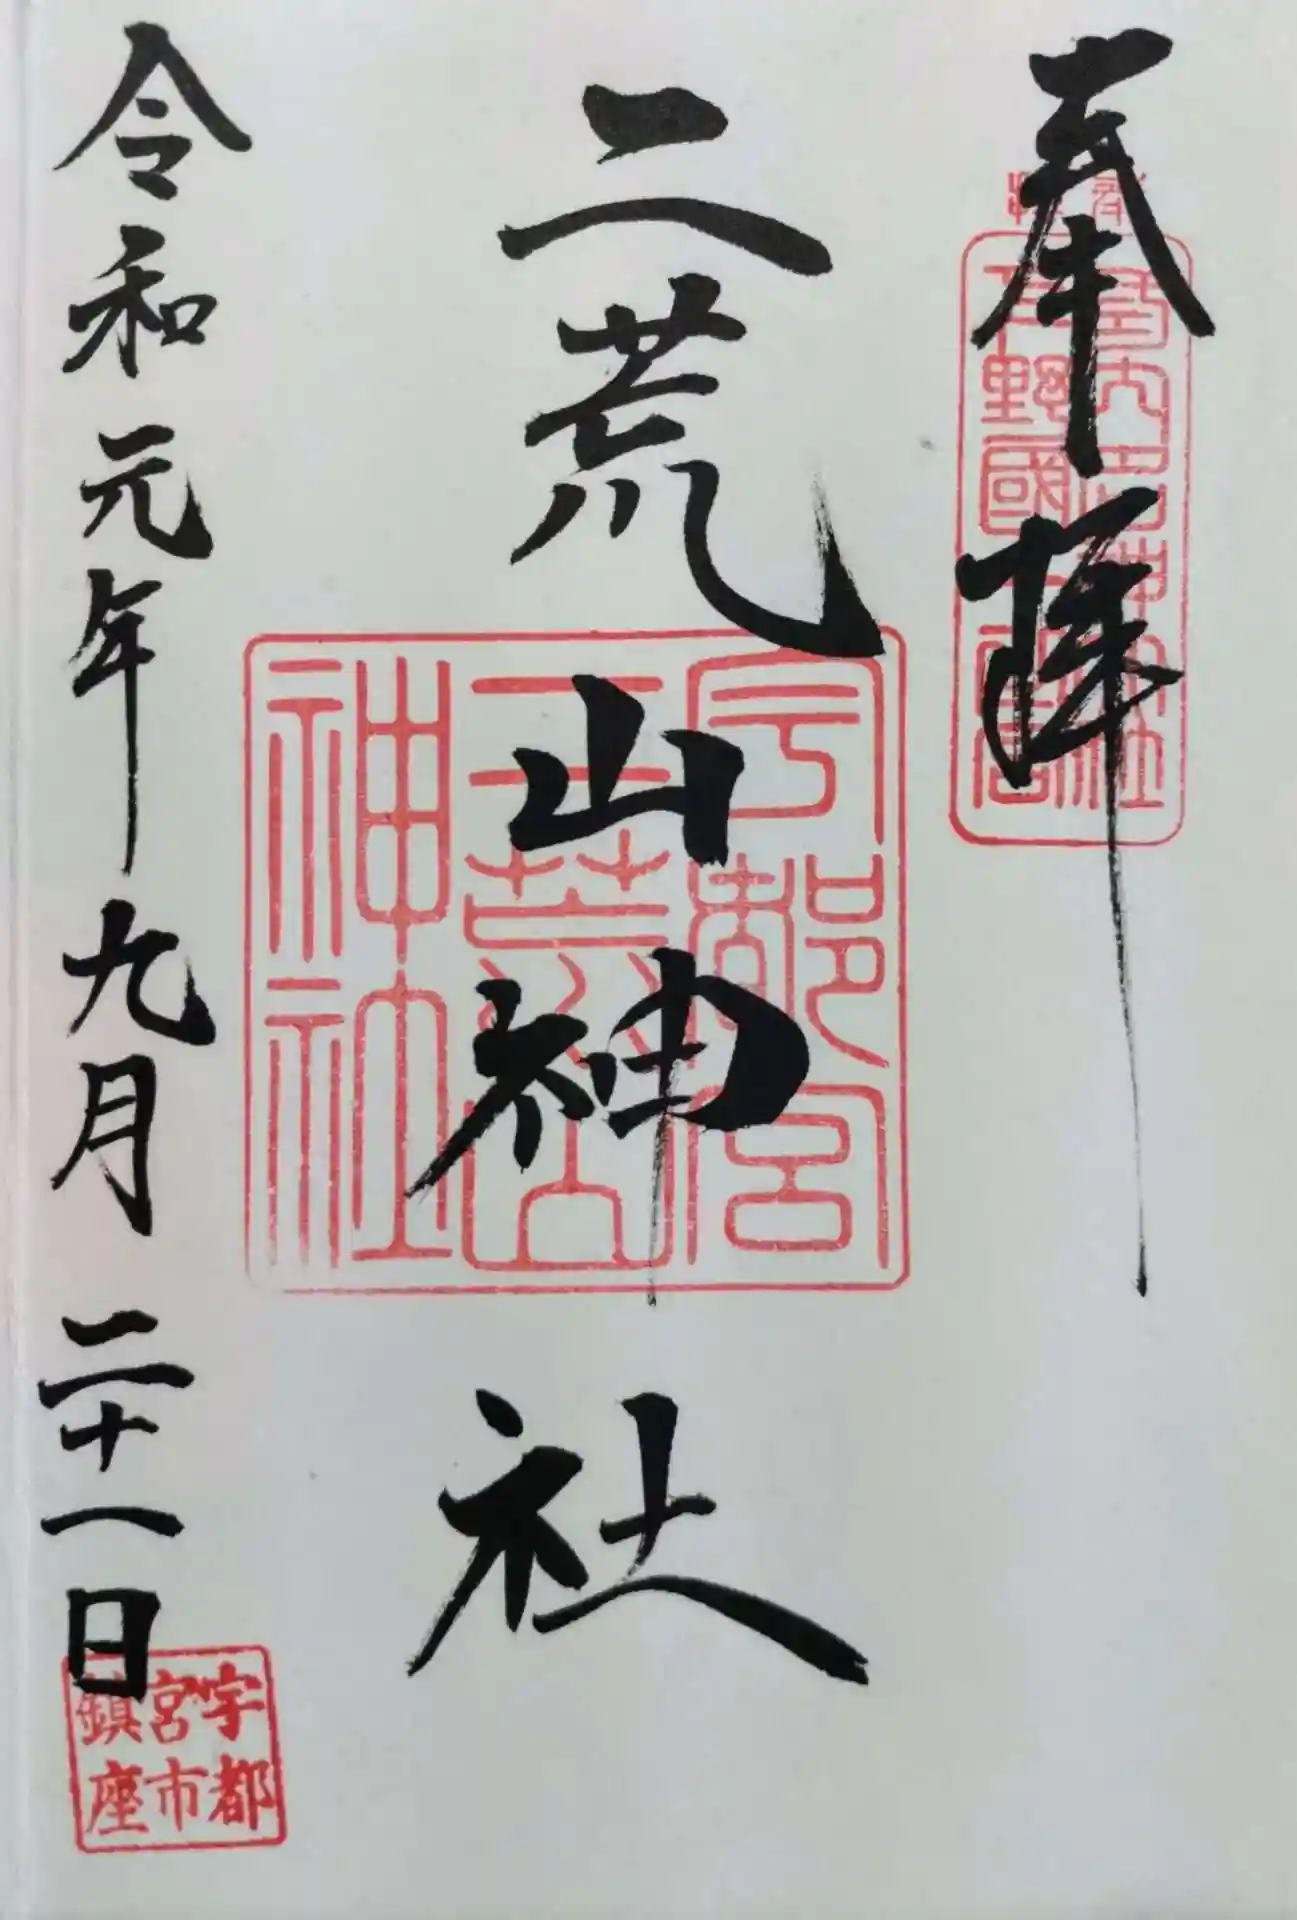 奉拝
下野國一宮
二荒山神社
宇都宮
二荒山
神社
令和元年九月二十一日
宇都
宮市
鎮座